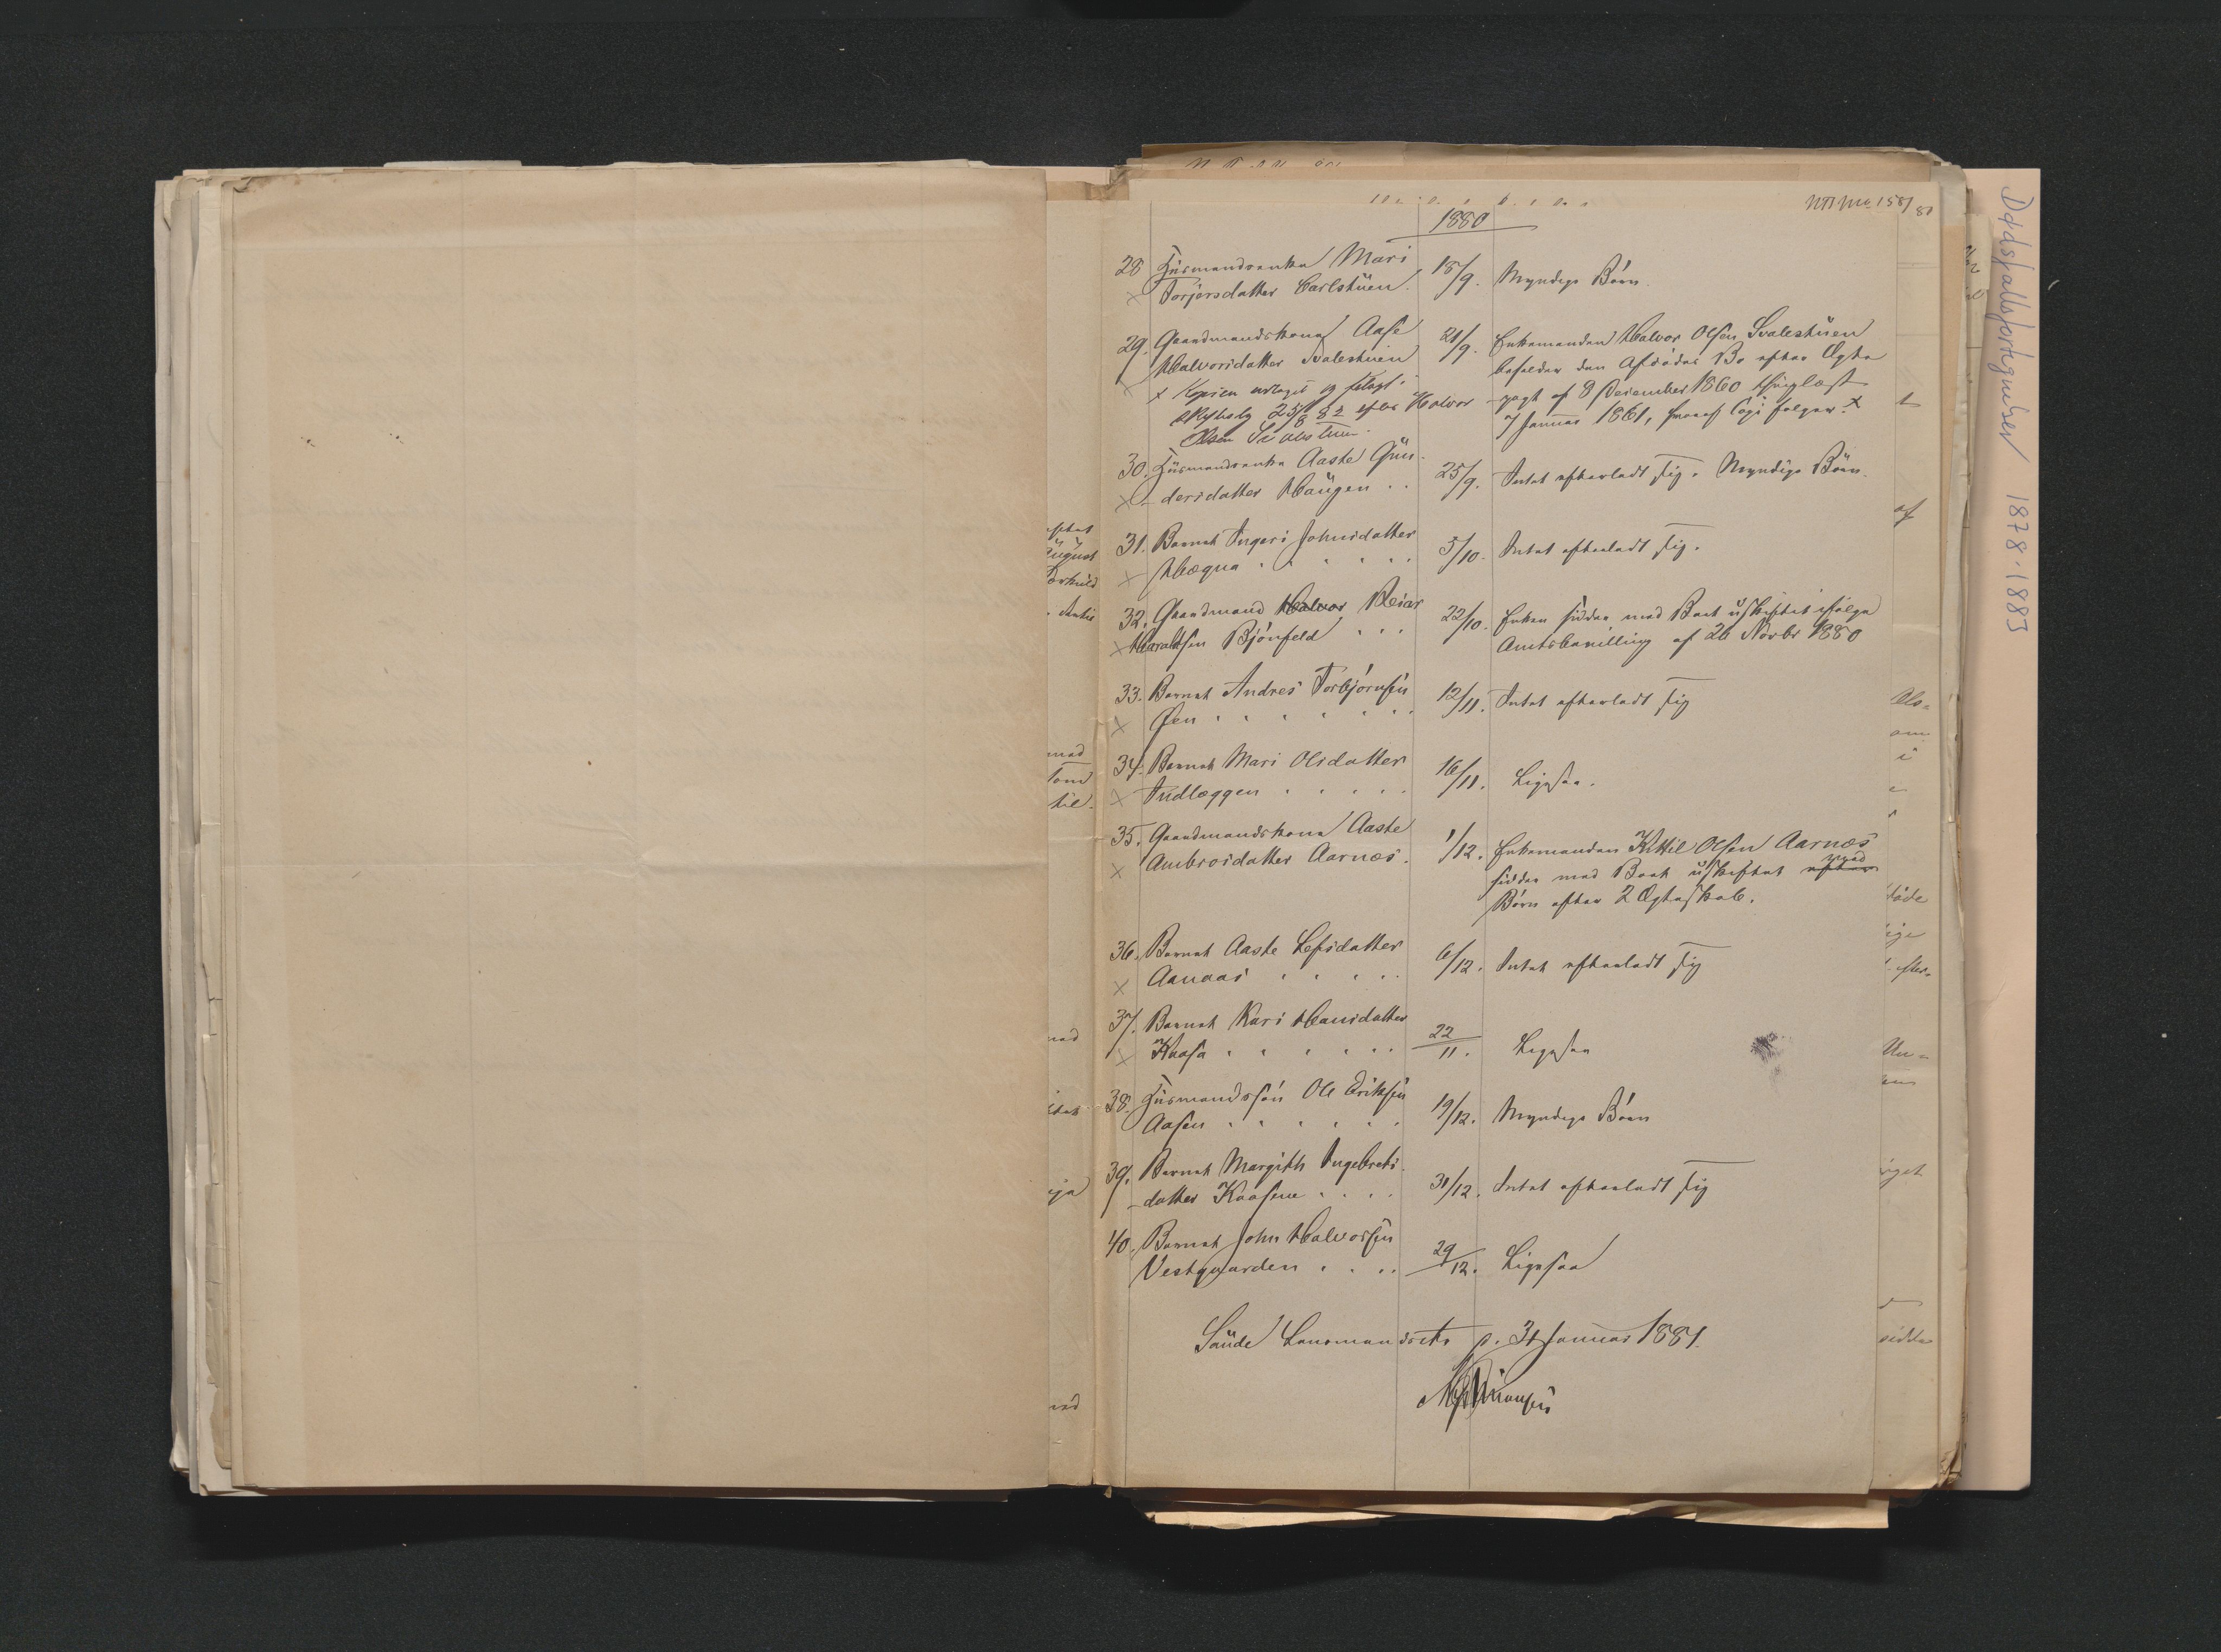 1880
28 Huusmandsenke Mari 18/9. Myndige Børn.
Torjersdatter Carlstuen.
29. Gaardmandskone Aase 21/9. Enkemanden Halvor Olsen Svalestuen
Halvorsdatter Svalestuen beholder den Afdødes Bo efter Ægte
x Kopien udtaget og pakt af 8 December 1860 thinglæst
25/8 82 efter Halvor
Olsen Svalestuen. 7 Januar 1861, hvoraf Copi følger. x
30. Huusmandsenke Aaste Gun- 25/9. Intet efterladt sig. Myndige Børn.
dersdatter Haugen . .
31. Barnet Ingeri Johnsdatter 5/10. Intet efterladt sig.
Hægna . . . . . .
32. Gaardmand Halvor Reiar 22/10. Enken sidder med Boet uskiftet ifølge
Haraldsen Bjønfeld . . . Amtsbevilling af 26 Novbr 1880
33. Barnet Andres Torbjørnsen 12/11. Intet efterladt sig
Øen . . . . . . .
34. Barnet Mari Olsdatter 16/11. Ligesaa.
Indlæggen . . . . .
35. Gaardmandskone Aaste 1/12. Enkemanden Kittil Olsen Aarnæs
Ambrosdatter Aarnæs. sidder med Boet uskiftet efter med
Børn efter 2 Ægteskab.
36. Barnet Aaste Lefsdatter 6/12. Intet efterladt sig
Aanaas . . . . .
37. Barnet Kari Hansdatter 22/11. Ligesaa
Kaasa . . . . . .
38. Huusmandssøn Ole Eriksen 19/12. Myndige Børn
Aasen . . . . . .
39. Barnet Margith Ingebrets- 31/12. Intet efterladt sig
datter Kaasene . . . .
40. Barnet John Halvorsen 29/12. Ligesaa
Vestgaarden . . . .
Saude Lensmandsete p. 31 Januar 1881.
Dødsfallsfortegnelser 1878-1883